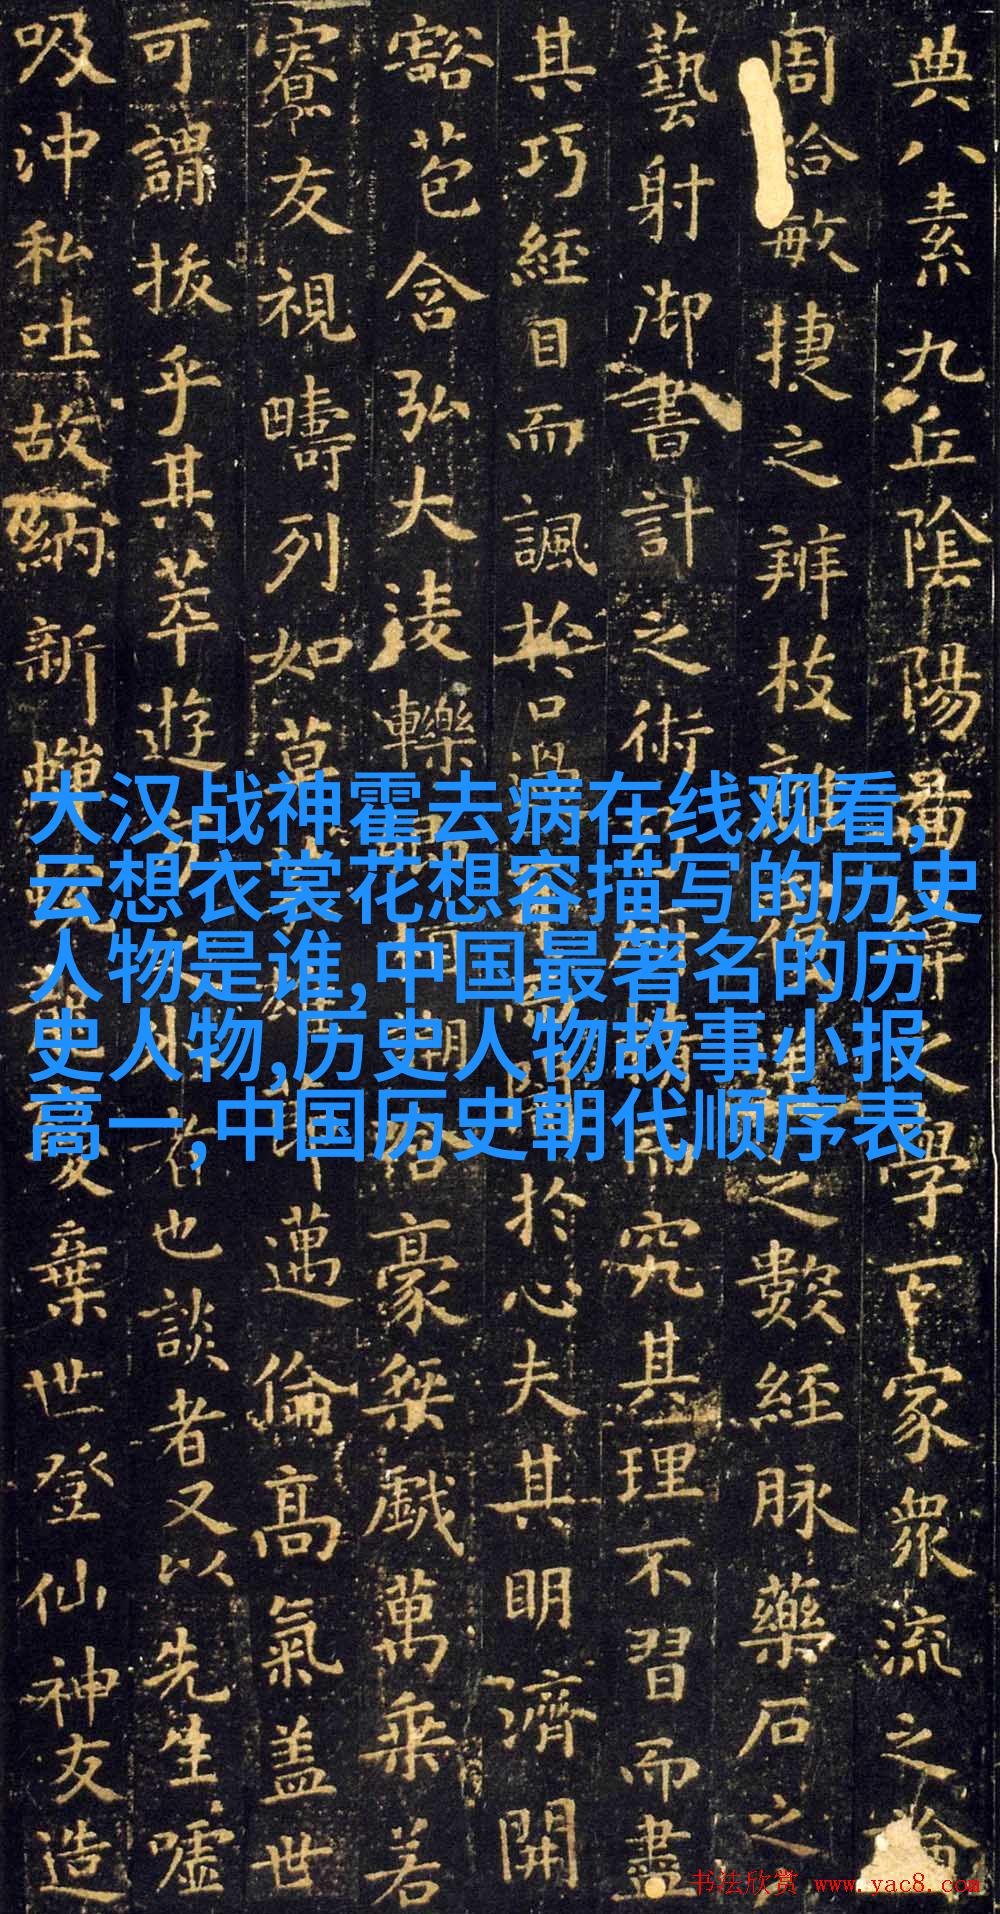 典八素九丘陰陽緯之學百家衆流之論
周給敏捷之辨枝之數經脉藥石之
藝射御書計之術而究其理不習而盡
其巧經目而諷於口過闇於心夫其明濟開
豁苞含弘大淩轢豪桀戲萬乘若
寮友視疇列如草節邁倫高氣蓋世
可謂拔乎其萃遊方之者也談者又以先生噓
吸沖和吐故納新蟬變棄世登仙神友造
大汉战神霍去病在线观看,
云想衣裳花想容描写的历史
人物是谁,中国最著名的历
史人物,历史人物故事小报
高一,中国历史朝代顺序表
书法欣赏 www.yac8.com